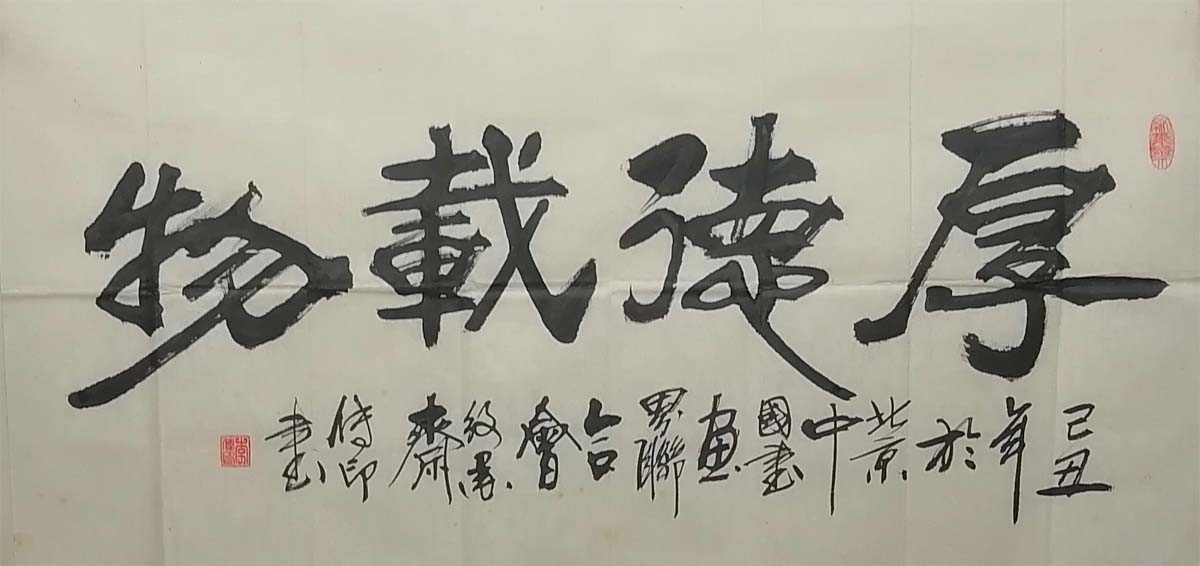 厚德載物
己丑年於北京中國書畫界聯合會翰墨齋傳印書